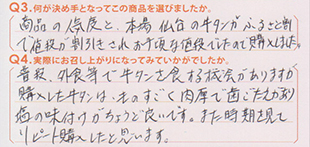 Q3.何が決め手となってこの商品を選びましたか。
商品の人気度と、本場仙台の牛タンがふるさと割
で値段が割引きされお手頃な値段でしたので購入しました。
Q4.実際にお召し上がりになってみていかがでしたか。
普段、外食等で牛タンを食する機会がありますが
購入した牛タンは、ものすごく肉厚で歯ごたえがあり
塩の味付けがちょうど良いです。また時期を見て
リピート購入したと思います。